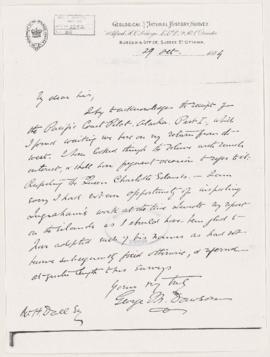 GEOLOGICAL & NATURAL HISTORY SURVEY
Alfred R. C. Selwyn, L.L.D., F.R.S. Director
MUSEUM & OFFICE, SUSSEX ST. OTTAWA.
29 Oct 1884
My dear Sir,
I beg to acknowledge the receipt of
the Pacific Coast Pilot, Alaska Part I, which
I found waiting me here on my return from the
west. I have looked through the volume with much
interest, & shall have frequent occasion to refer to it.
Respecting the Queen Charlotte Islands — I am
sorry I had not an opportunity of inspecting
Ingraham's work at the time I wrote my report
on the Islands as I should have been glad to
have adopted such of his names as had not
been subsequently fixed otherwise, & referred
at greater length to his surveys
Yours very truly
George M. Dawson
W H Dall Esq